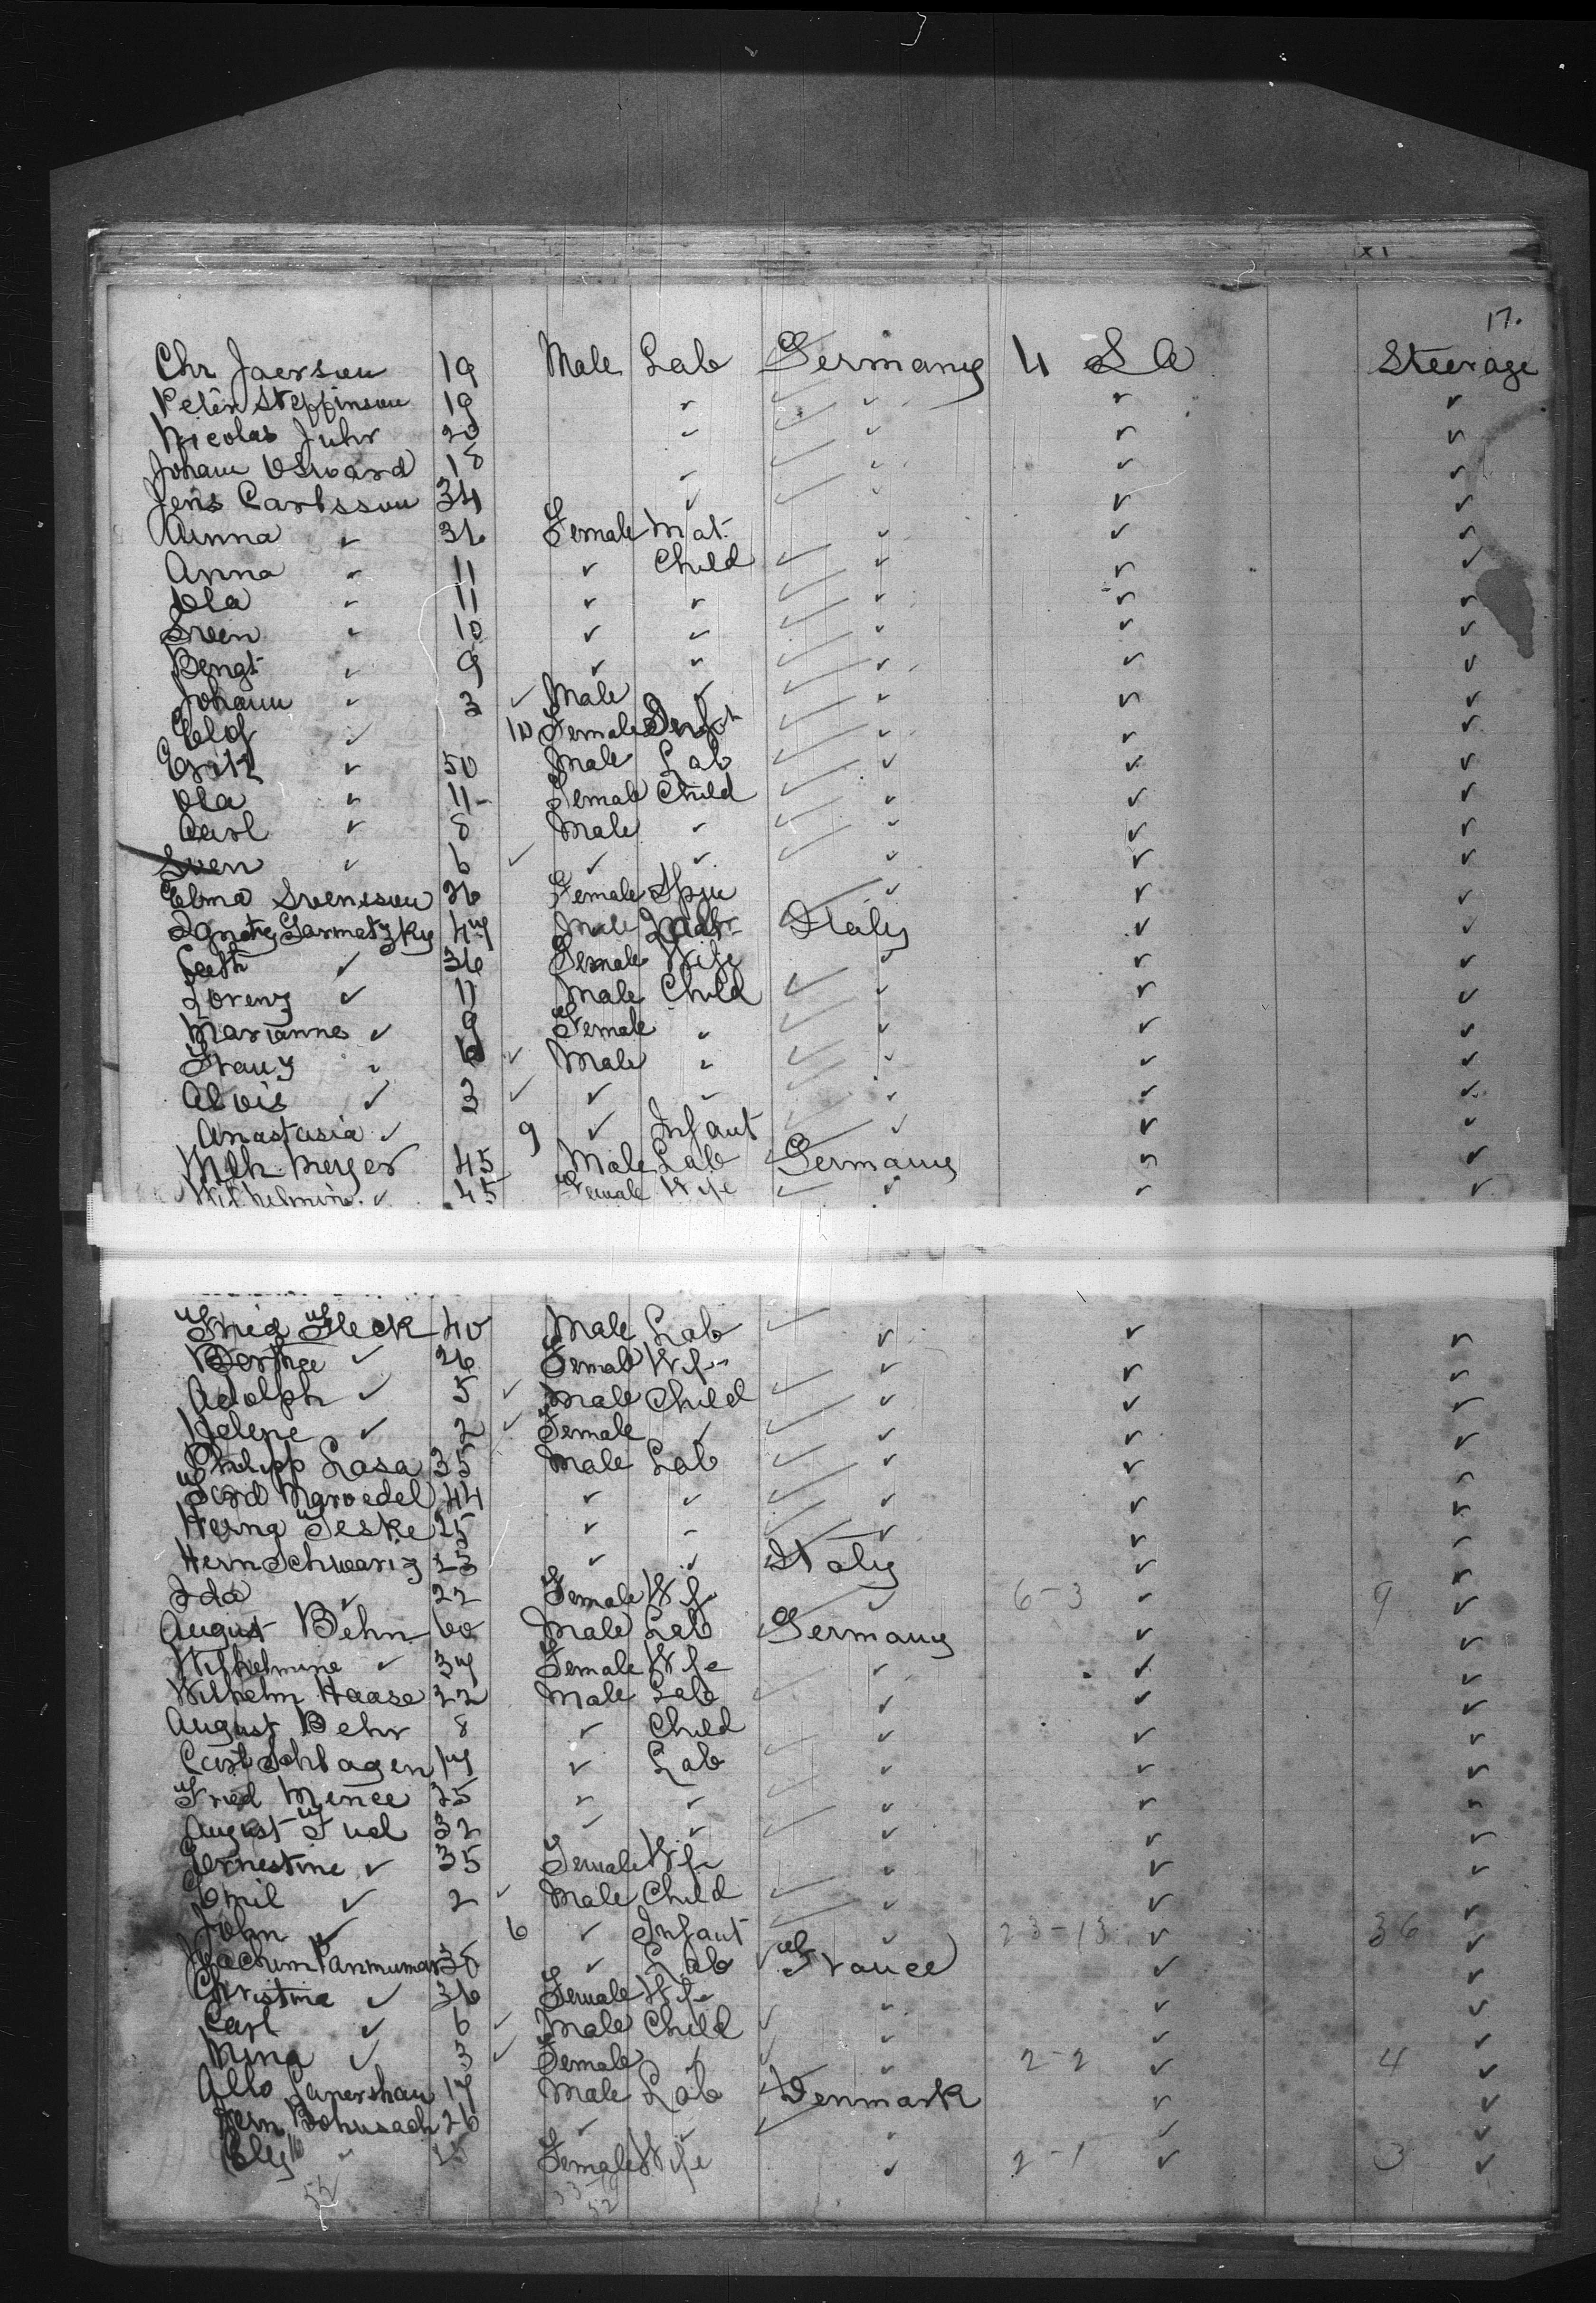 17.
Chr Jaerson 19 Male Lab Germany 4 S A Steerage
Peter Steffinson 19 ✓ ✓ ✓ ✓
Nicolas Juhr 20 ✓ ✓ ✓ ✓
Johann 18 ✓ ✓ ✓ ✓
Jens Carlsson 34 ✓ ✓ ✓ ✓
Anna ✓ 36 Female Mat. ✓ ✓ ✓
Anna ✓ 11 ✓ Child ✓ ✓ ✓
Ola ✓ 11 ✓ ✓ ✓ ✓ ✓
Sven ✓ 10 ✓ ✓ ✓ ✓ ✓
Bengt ✓ 9 ✓ ✓ ✓ ✓ ✓
Johann ✓ 3 ✓ Male ✓ ✓ ✓ ✓
Elof ✓ 10 Female Inft ✓ ✓ ✓
Erik ✓ 50 Male Lab ✓ ✓ ✓
Ola ✓ 11 - Female Child ✓ ✓ ✓
Carl ✓ 8 Male ✓ ✓ ✓ ✓
Sven ✓ 6 ✓ ✓ ✓ ✓ ✓ ✓
Elma Svenson 26 Female Spin ✓ ✓ ✓
Ignatz Garmatzky 47 Male Lab Italy ✓ ✓
✓ 36 Female Wife ✓ ✓ ✓
Lorenz ✓ 11 Male Child ✓ ✓ ✓
Marianne ✓ 9 Female ✓ ✓ ✓ ✓
Franz ✓ 6 ✓ Male ✓ ✓ ✓ ✓
Alois ✓ 3 ✓ ✓ ✓ ✓ ✓ ✓
Anastasia ✓ 9 ✓ Infant ✓ ✓ ✓
Wilh Meyer 45 Male Lab Germany ✓ ✓
Wilhelmine ✓ 45 Female Wife ✓ ✓ ✓
Fried Fleck 40 Male Lab ✓ ✓ ✓
Berthe ✓ 26 Female Wife ✓ ✓ ✓
Adolph ✓ 5 ✓ Male Child ✓ ✓ ✓
Helene ✓ 2 ✓ Female ✓ ✓ ✓ ✓
Philipp Lasa 35 Male Lab ✓ ✓ ✓
Ferd Marvedel 44 ✓ ✓ ✓ ✓ ✓
Herna Feske 25 ✓ ✓ ✓ ✓ ✓
Hern Schwariz 23 ✓ ✓ Italy ✓ ✓
Ida ✓ 22 Female Wife ✓ 6-3 ✓ 9 ✓
August Behn 60 Male Lab Germany ✓ ✓
Wilhelmine ✓ 37 Female Wife ✓ ✓ ✓
Wilhelm Haase 22 Male Lab ✓ ✓ ✓
August Behr 8 ✓ Child ✓ ✓ ✓
Curt Schlagen 17 ✓ Lab ✓ ✓ ✓
Fried Mencee 25 ✓ ✓ ✓ ✓ ✓
August Fual 32 ✓ ✓ ✓ ✓ ✓
Ernestine ✓ 35 Female Wife ✓ ✓ ✓
Emil ✓ 2 ✓ Male Child ✓ ✓ ✓
John ✓ 6 ✓ Infant ✓ 23-13 ✓ 36 ✓
Joachim 38 ✓ Lab France ✓ ✓
Christina ✓ 36 Female Wife ✓ ✓ ✓
Carl ✓ 6 ✓ Male Child ✓ ✓ ✓
Mina ✓ 3 ✓ Female ✓ ✓ 2-2 ✓ 4 ✓
17 Male Lab Denmark ✓ ✓
Hern Bohusach 26 ✓ ✓ ✓ ✓ ✓
✓ 25 Female Wife ✓ 2-1 ✓ 3 ✓
52 33-19
52